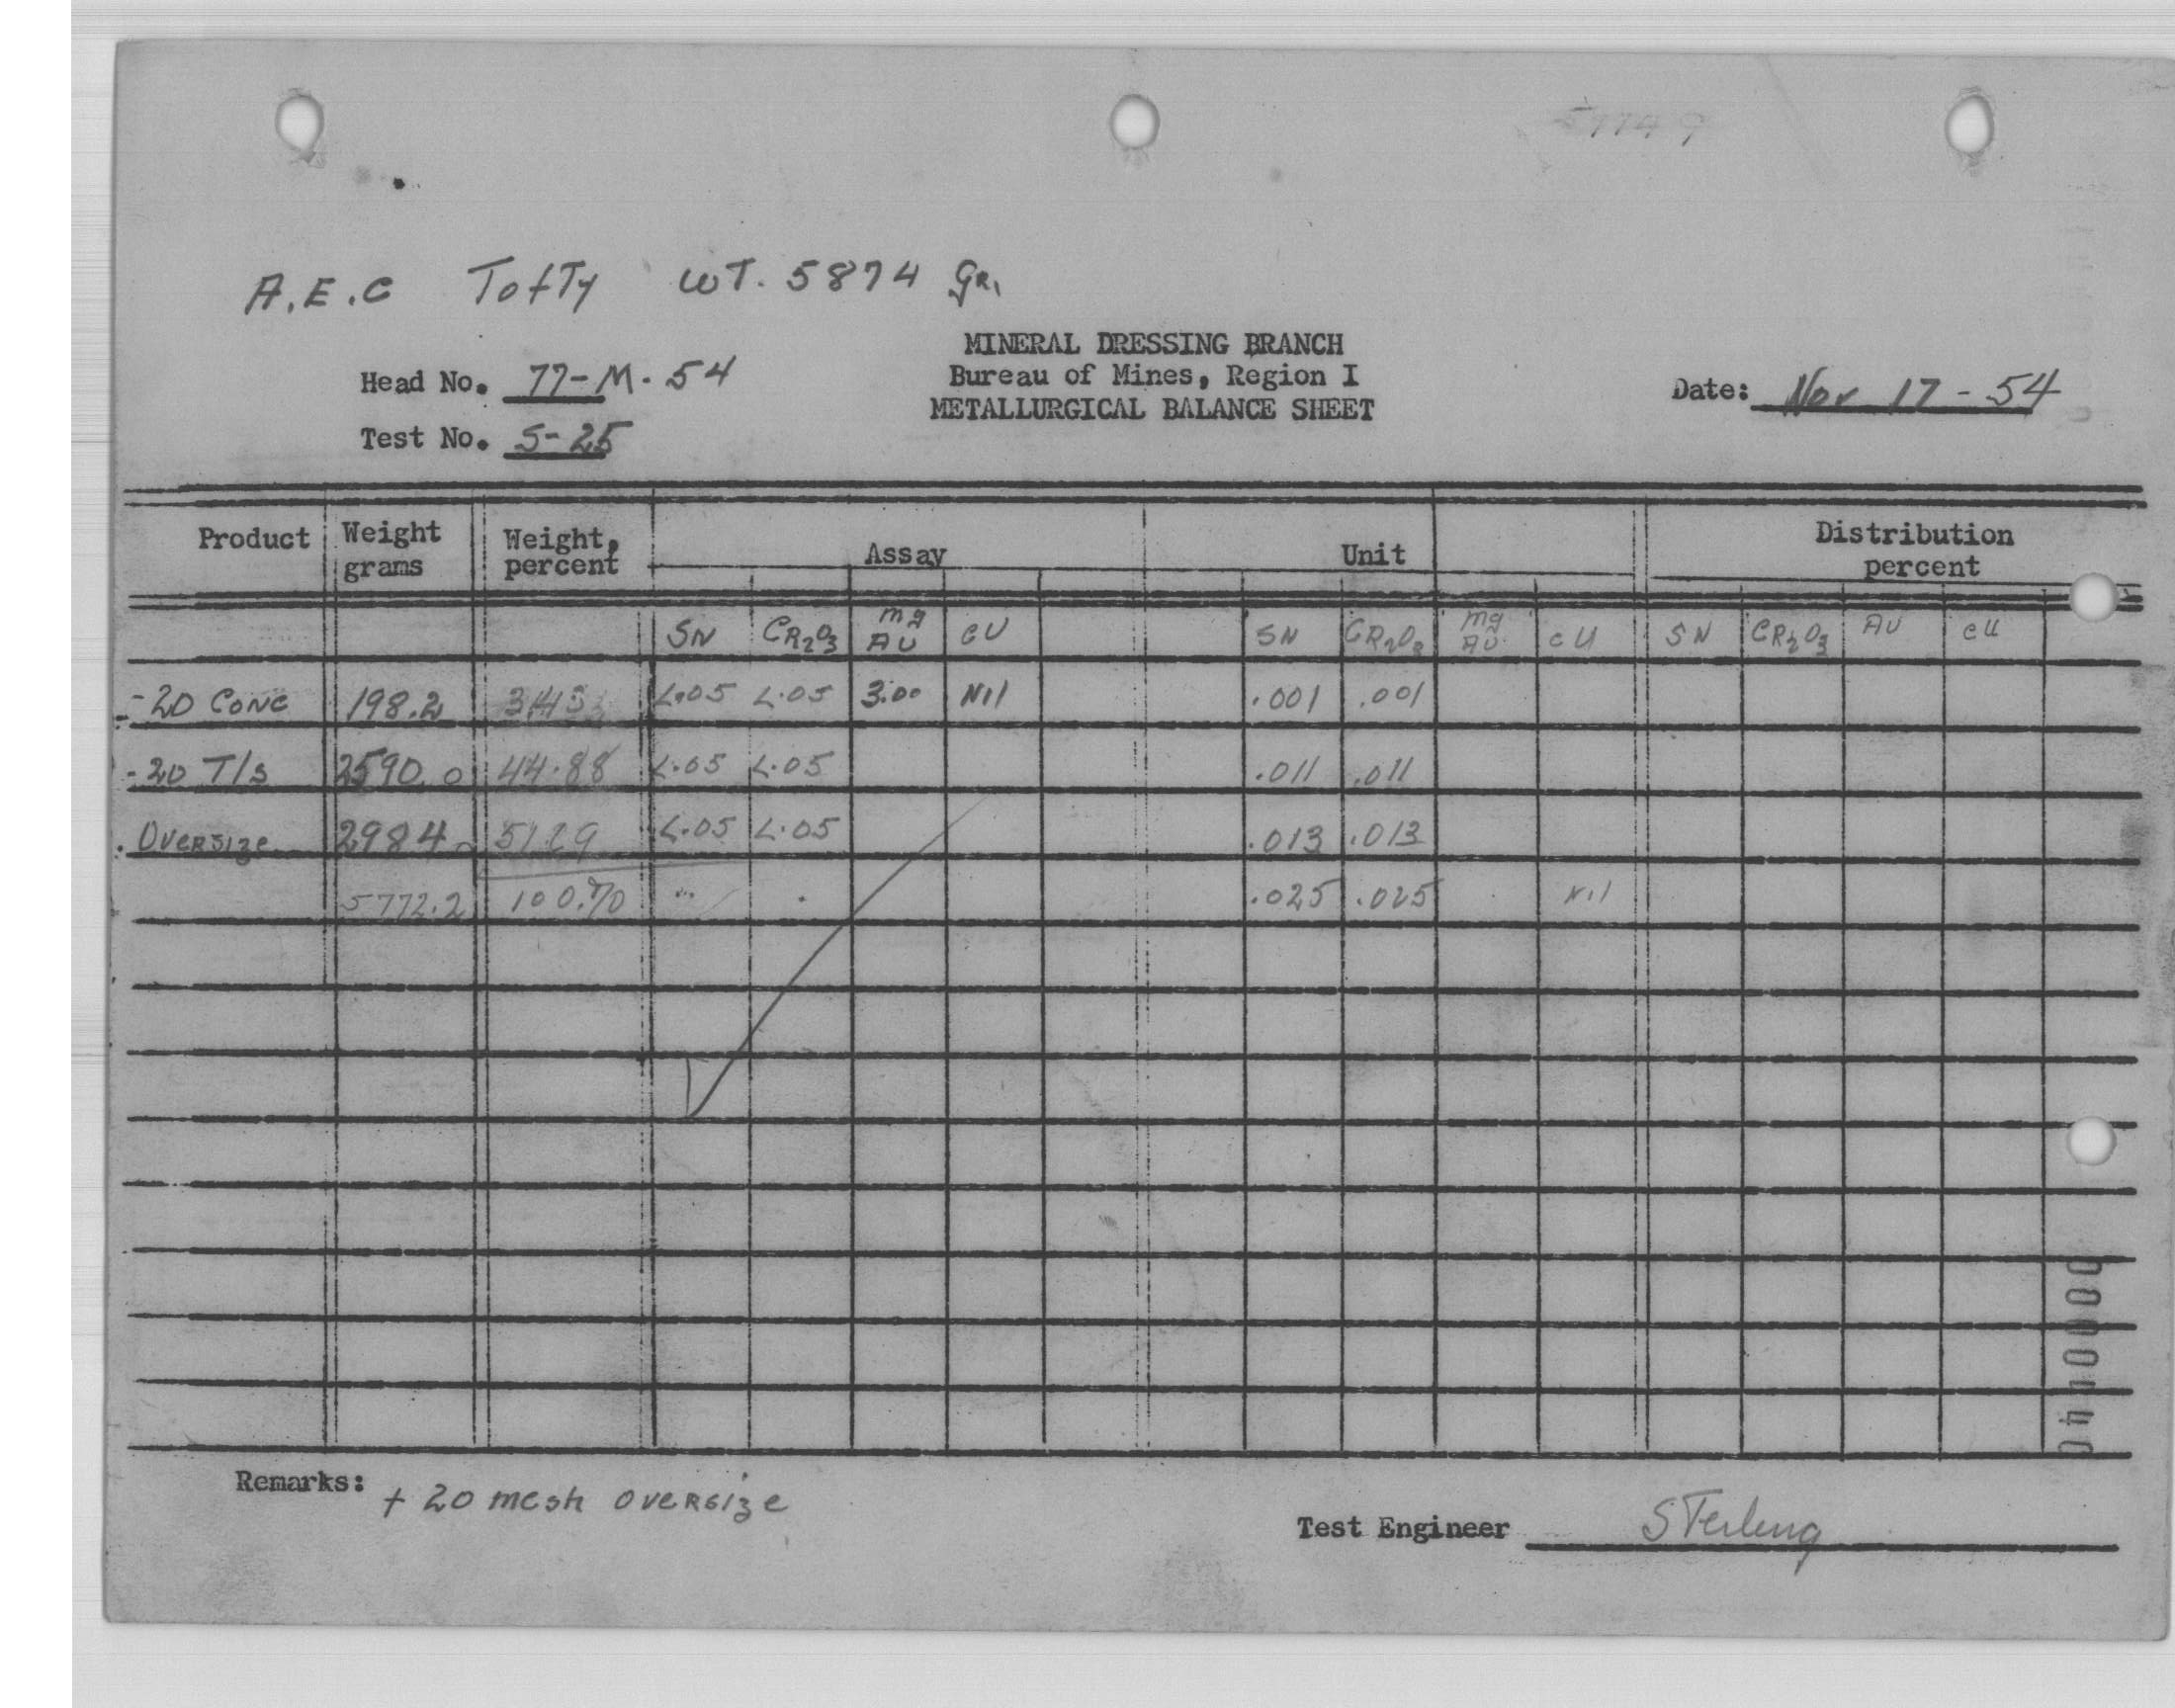 A.E.C Tofty WT. 5874 GR.
MINERAL DRESSING BRANCH
Head No. 77-M-54 Bureau of Mines, Region I Date: Nov 17-54
METALLURGICAL BALANCE SHEET
Test No. S-25
Product Weight grams Weight, percent Assay Unit Distribution percent
SN CR2O3 mg AU CU SN CR2O3 mg AU CU SN CR2O3 AU CU
-20 CONC 198.2 3.43 L.05 L.05 3.00 Nil .001 .001
-20 T/s 2590.0 44.88 L.05 L.05 .011 .011
OVERSIZE 2984 L.05 L.05 .013 .013
5772.2 100.% .025 .025 Nil
Remarks: + 20 mesh OVERSIZE
Test Engineer Sterling